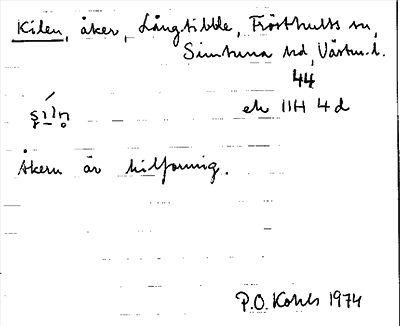 Kilen, åker, Långtibble, Frösthults sn,
Simtuna hd, Västm. l.
44
ek 11H 4d
Åkern är kilformig.
P.O. Kohls 1974